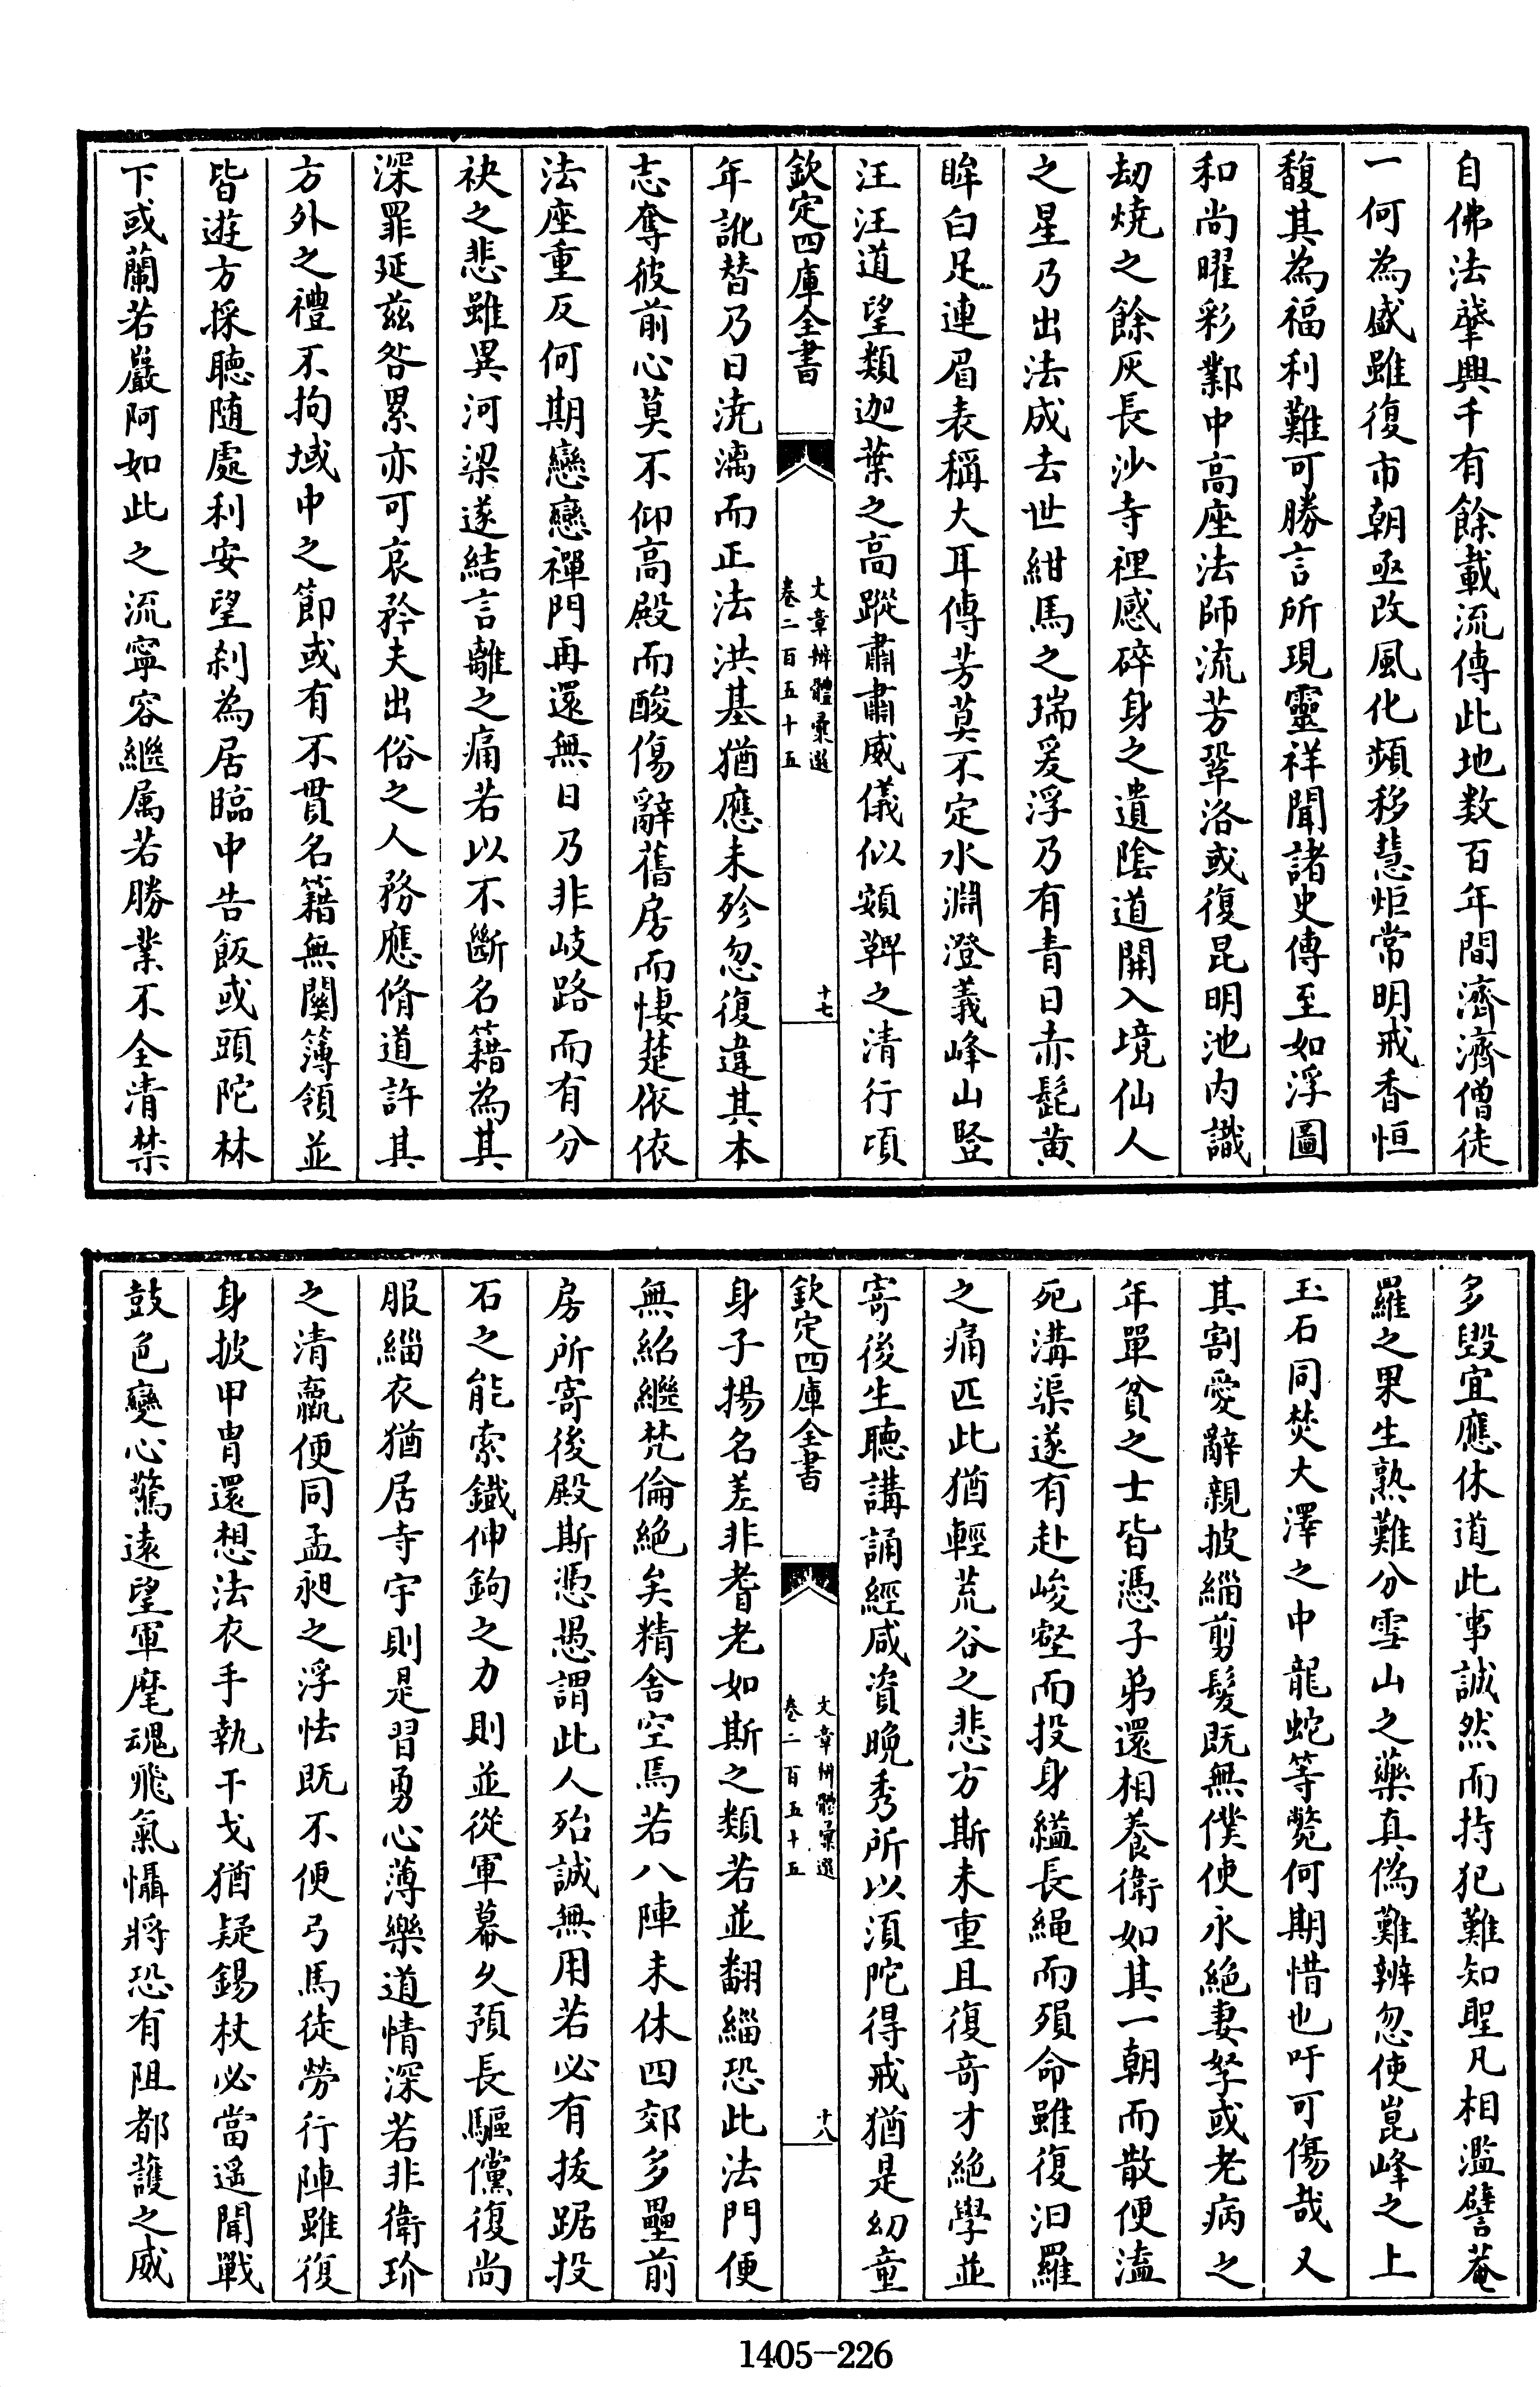 自佛法肇興千有餘載流傳此地数百年間濟濟僧徒
一何為盛雖復市朝亟改風化頻移慧炬常明戒香恒
馥其為福利難可勝言所現靈祥聞諸史傳至如浮圖
和尚曜彩鄴中高座法師流芳鞏洛或復昆明池内識
劫燒之餘灰長沙寺裡感碎身之遺陰道開入境仙人
之星乃出法成去世紺馬之瑞爰浮乃有青目赤髭黄
眸白足連眉表稱大耳傳芳莫不定水淵澄義峰山竪
汪汪道望類迦葉之高蹤肅肅威儀似頞鞞之清行頃
欽定四庫全書
文章辨體彙選
卷二百五十五
十七
年訛替乃日澆漓而正法洪基猶應未殄忽復違其本
志奪彼前心莫不仰高殿而酸傷辭舊房而悽楚依依
法座重反何期戀戀禪門再還無日乃非岐路而有分
袂之悲雖異河梁遂結言離之痛若以不斷名籍為其
深罪延茲咎累亦可哀矜夫出俗之人務應脩道許其
方外之禮不拘域中之節或有不貫名籍無關簿領並
皆遊方採聽随處利安望刹為居臨中告飯或頭陀林
下或蘭若巖阿如此之流寧容繼属若勝業不全清禁
多毀宜應休道此事誠然而持犯難知聖凡相濫譬菴
羅之果生熟難分雪山之藥真偽難辨忽使崑峰之上
玉石同焚大澤之中龍蛇等斃何期惜也吁可傷哉又
其割愛辭親披緇剪髮既無僕使永絶妻孥或老病之
年單貧之士皆憑子弟還相養衛如其一朝而散便溘
死溝渠遂有赴峻壑而投身縊長繩而殞命雖復汨羅
之痛匹此猶輕荒谷之悲方斯未重且復奇才絶學並
寄後生聽講誦經咸資晩秀所以須陀得戒猶是幼童
欽定四庫全書
文章辨體彙選
卷二百五十五
十八
身子揚名差非耆老如斯之類若並翻緇恐此法門便
無紹繼梵倫絶矣精舍空焉若八陣未休四郊多壘前
房所寄後殿斯憑愚謂此人殆誠無用若必有拔踞投
石之能索鐡伸鉤之力則並從軍幕久預長驅儻復尚
服緇衣猶居寺宇則是習勇心薄樂道情深若非衛玠
之清羸便同孟昶之浮怯既不便弓馬徒勞行陣雖復
身披甲胄還想法衣手執干戈猶疑錫杖必當遥聞戰
鼓色變心驚遠望軍麾魂飛氣懾將恐有阻都䕶之威
1405-226